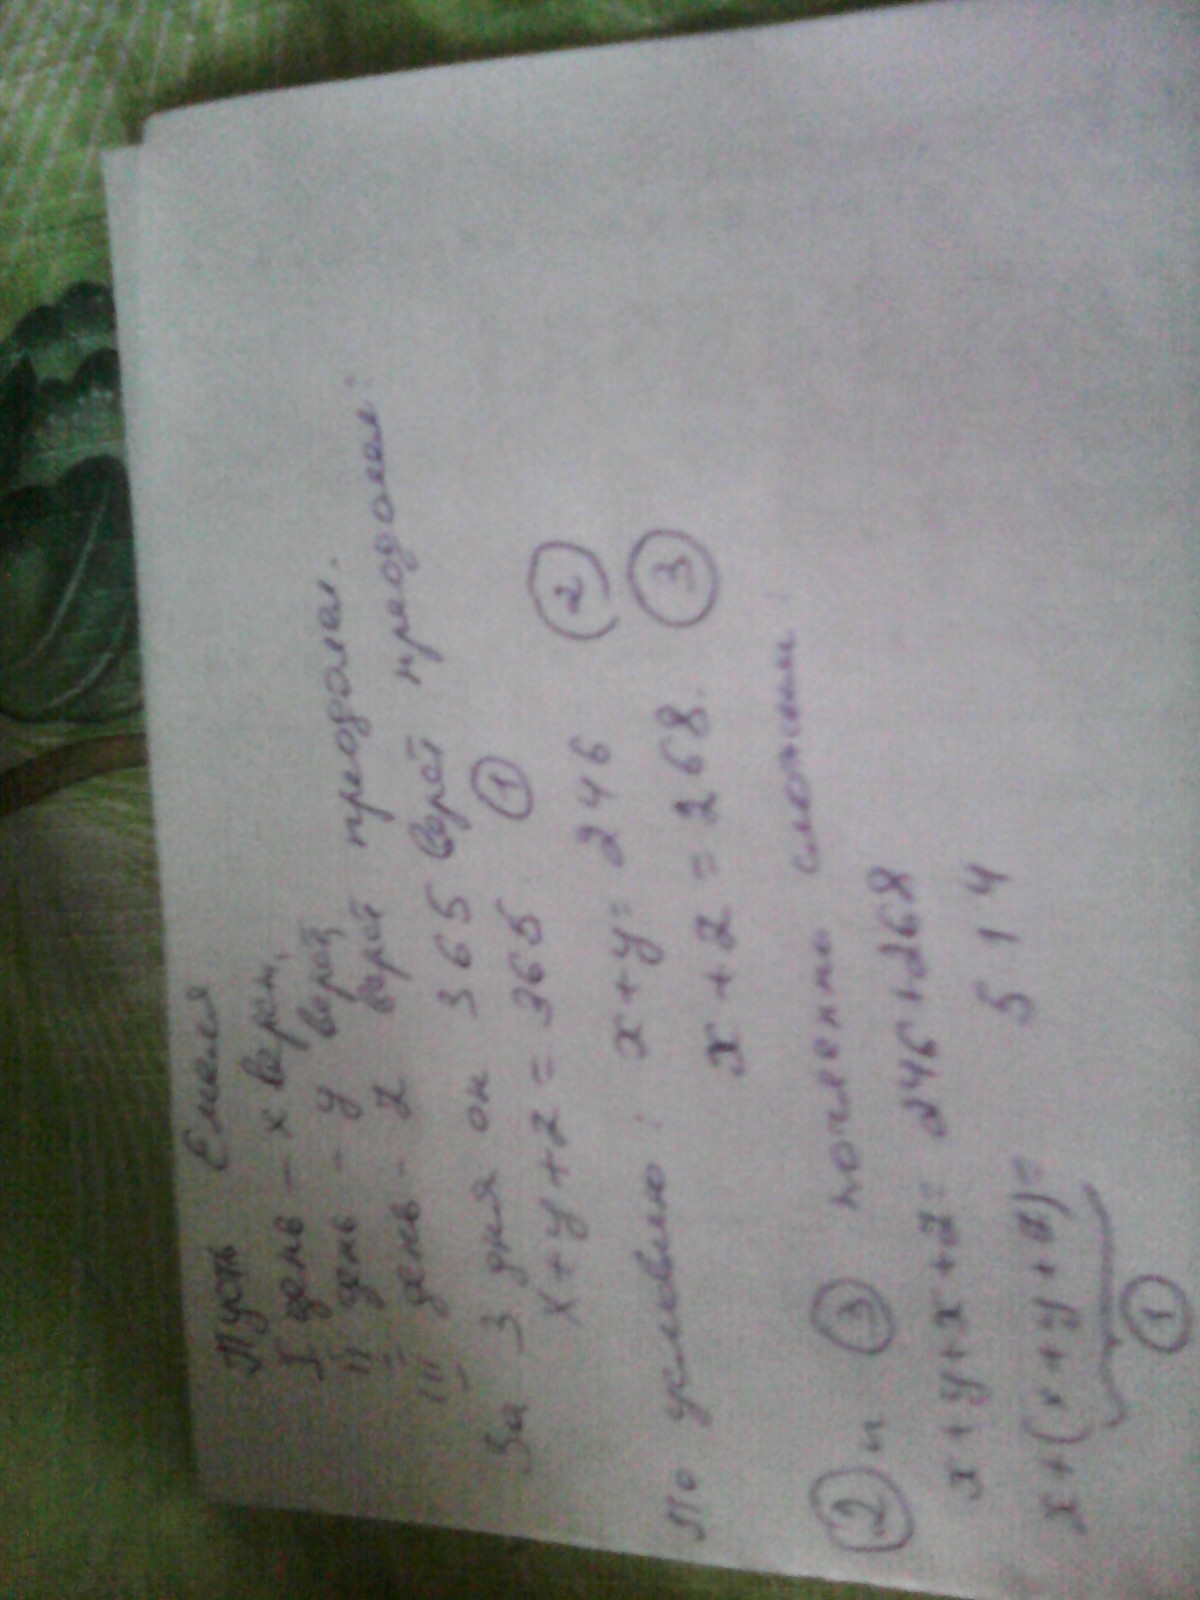 Пусть Емеля
I день - x верст,
II день - y верст
III день - z верст преодолел.
За 3 дня он 365 верст преодолел:
x+y+z=365. ①
По условию: x+y=246 ②
x+z=268. ③
② и ③ почленно сложим:
x+y+x+z=246+268
x+(x+y+z)= 514
①